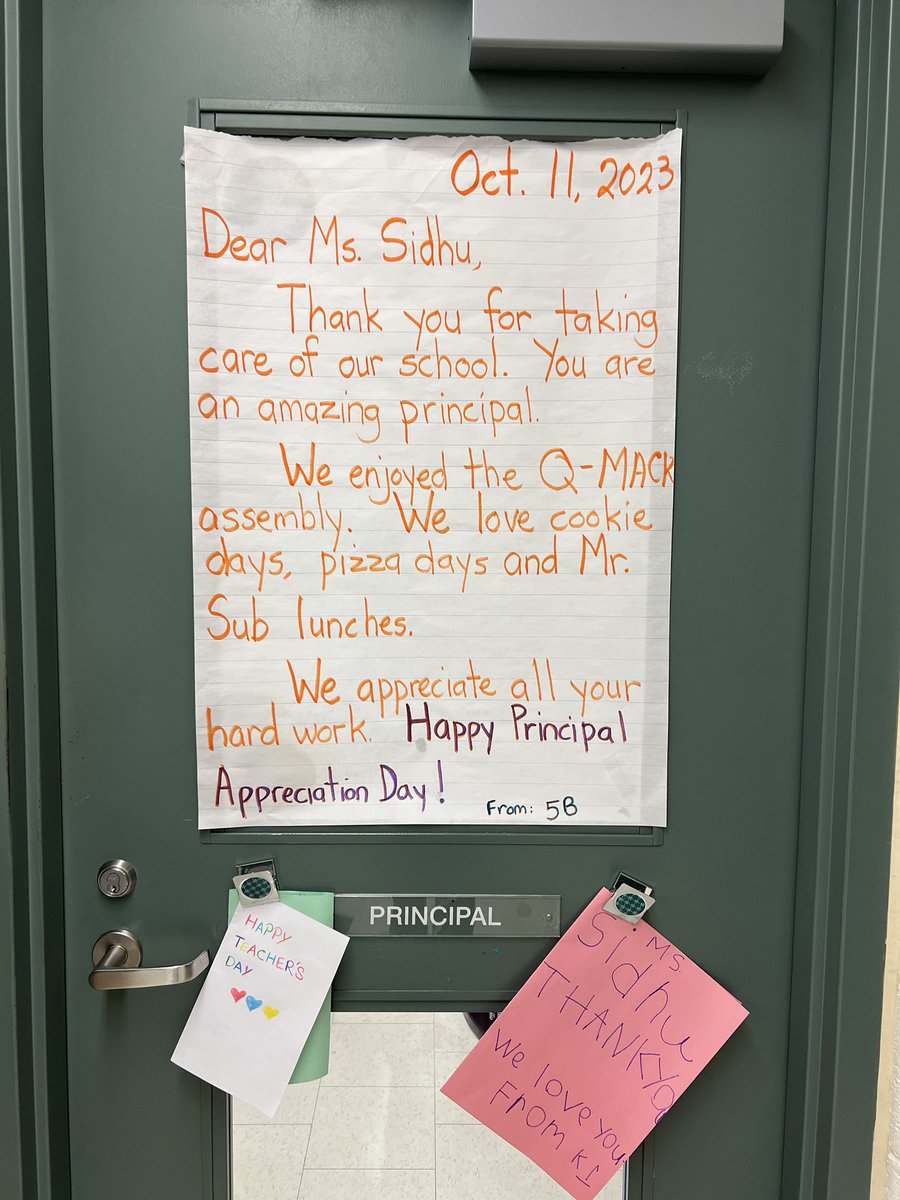 Oct. 11, 2023
Dear Ms. Sidhu,
Thank you for taking
care of our school. You are
an amazing principal.
We enjoyed the Q-MACK
assembly. We love cookie
days, pizza days and Mr.
Sub lunches.
We appreciate all your
hard work. Happy Principal
Appreciation Day!
From: 5B
PRINCIPAL
HAPPY
TEACHER'S
DAY
MS.
Sidhu
THANKYOU
We love you
FROM K1